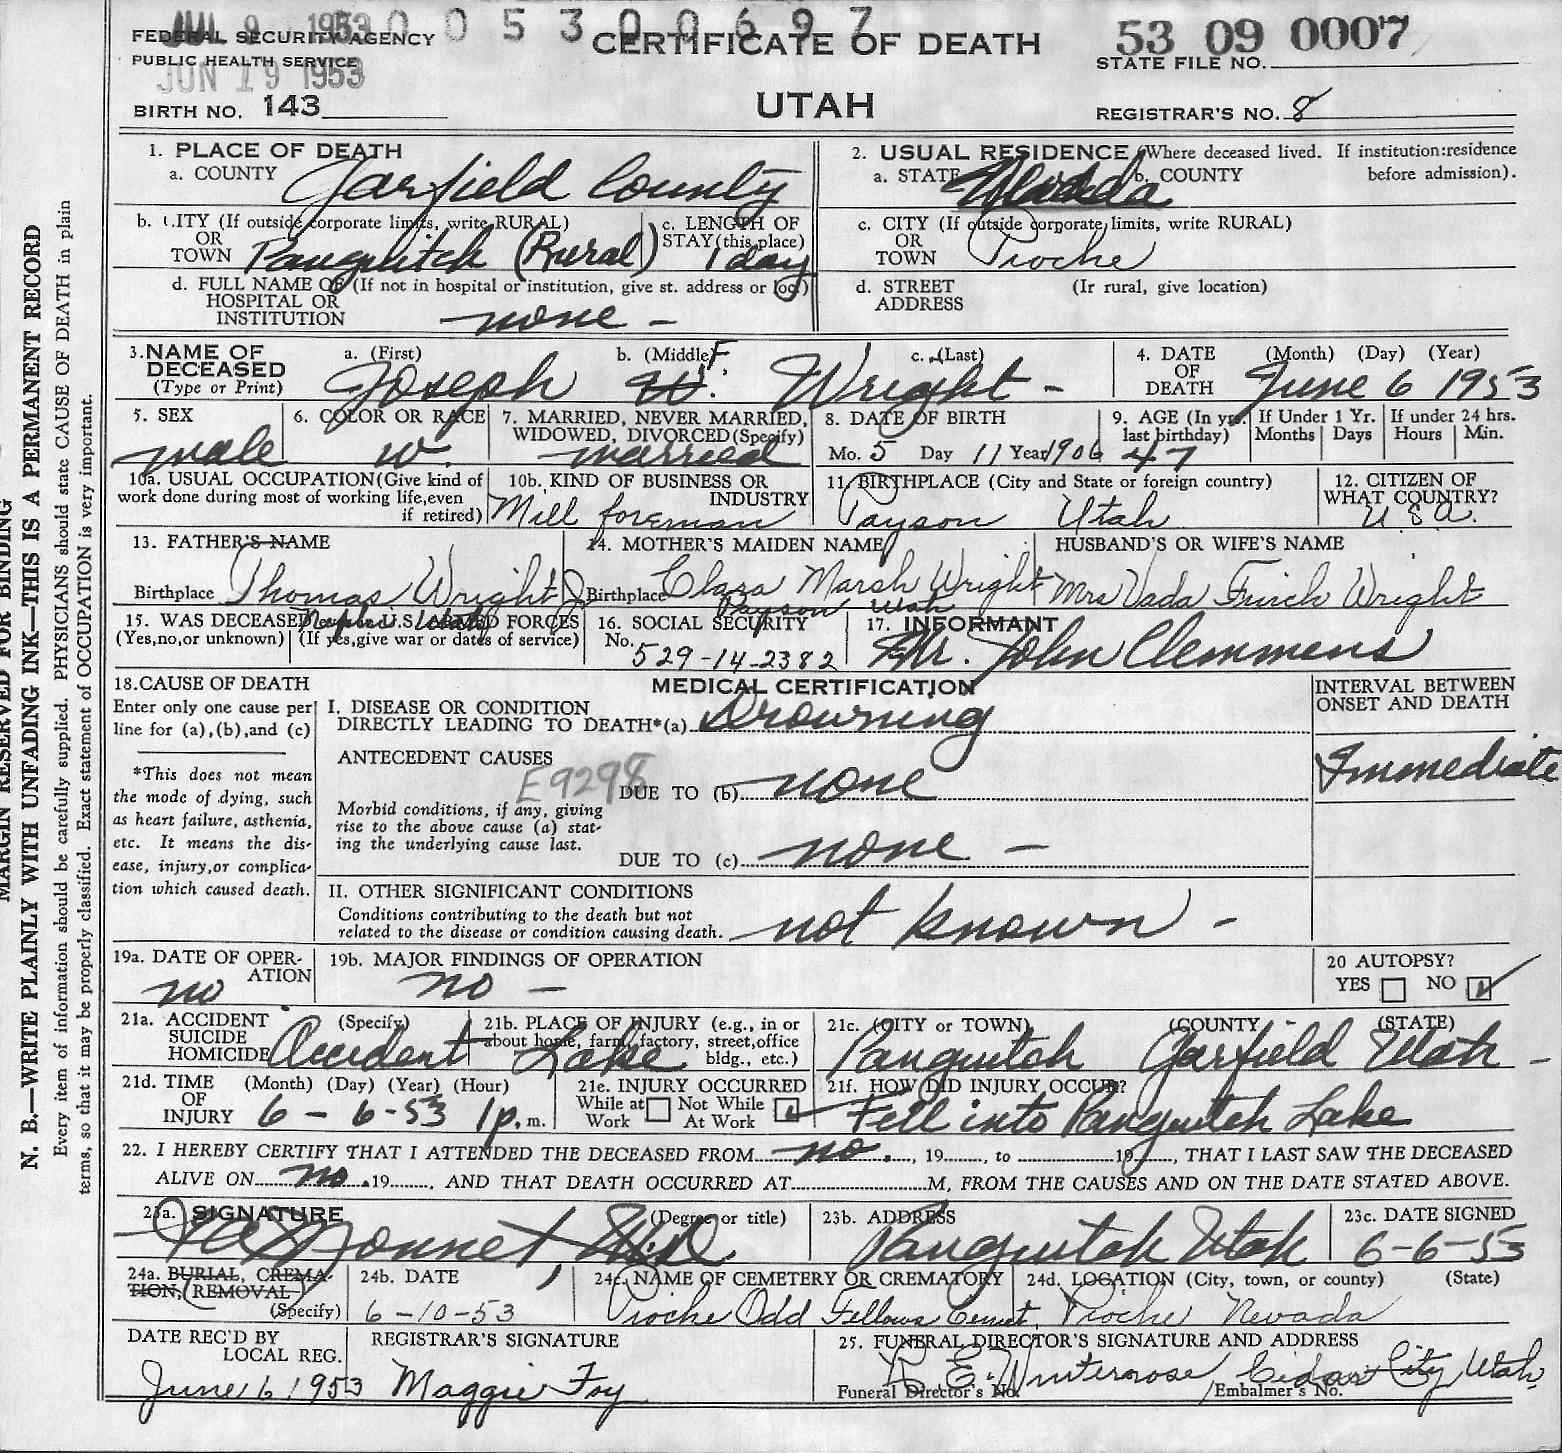 JUL 9 1953 0 0 5 3 0 0 6 9 7
FEDERAL SECURITY AGENCY
PUBLIC HEALTH SERVICE
JUN 19 1953
BIRTH NO. 143
CERTIFICATE OF DEATH
UTAH
53 09 0007
STATE FILE NO.
REGISTRAR'S NO. 8
MARGIN RESERVED FOR BINDING
N. B.—WRITE PLAINLY WITH UNFADING INK—THIS IS A PERMANENT RECORD
Every item of information should be carefully supplied. PHYSICIANS should state CAUSE OF DEATH in plain
terms, so that it may be properly classified. Exact statement of OCCUPATION is very important.
1. PLACE OF DEATH
a. COUNTY Garfield County
b. CITY (If outside corporate limits, write RURAL)
OR
TOWN Panguitch (Rural)
c. LENGTH OF
STAY (this place)
1 day
d. FULL NAME OF (If not in hospital or institution, give st. address or loc.)
HOSPITAL OR
INSTITUTION none -
2. USUAL RESIDENCE (Where deceased lived. If institution: residence
before admission).
a. STATE Nevada b. COUNTY
c. CITY (If outside corporate limits, write RURAL)
OR
TOWN Pioche
d. STREET (Ir rural, give location)
ADDRESS
3. NAME OF
DECEASED
(Type or Print)
a. (First) b. (Middle) c. (Last)
Joseph W. F. Wright -
4. DATE (Month) (Day) (Year)
OF
DEATH June 6 1953
5. SEX
male
6. COLOR OR RACE
w.
7. MARRIED, NEVER MARRIED,
WIDOWED, DIVORCED (Specify)
married
8. DATE OF BIRTH
Mo. 5 Day 11 Year 1906
9. AGE (In yr.
last birthday)
47
If Under 1 Yr.
Months Days
If under 24 hrs.
Hours Min.
10a. USUAL OCCUPATION (Give kind of
work done during most of working life, even
if retired)
10b. KIND OF BUSINESS OR
INDUSTRY
Mill foreman
11. BIRTHPLACE (City and State or foreign country)
Payson Utah
12. CITIZEN OF
WHAT COUNTRY?
U S A.
13. FATHER'S NAME
Thomas Wright
Birthplace
14. MOTHER'S MAIDEN NAME
Clara Marsh Wright
Birthplace Payson Utah
HUSBAND'S OR WIFE'S NAME
Mrs Vada Wright
15. WAS DECEASED U.S. ARMED FORCES
(Yes, no, or unknown) (If yes, give war or dates of service)
16. SOCIAL SECURITY
No. 529-14-2382
17. INFORMANT
Mr. John Clemmens
18. CAUSE OF DEATH
Enter only one cause per
line for (a), (b), and (c)
*This does not mean
the mode of dying, such
as heart failure, asthenia,
etc. It means the dis-
ease, injury, or complica-
tion which caused death.
MEDICAL CERTIFICATION
I. DISEASE OR CONDITION
DIRECTLY LEADING TO DEATH*(a) Drowning
ANTECEDENT CAUSES
E9298
DUE TO (b) none
Morbid conditions, if any, giving
rise to the above cause (a) stat-
ing the underlying cause last.
DUE TO (c) none -
II. OTHER SIGNIFICANT CONDITIONS
Conditions contributing to the death but not
related to the disease or condition causing death.
not known -
INTERVAL BETWEEN
ONSET AND DEATH
Immediate
19a. DATE OF OPER-
ATION
no
19b. MAJOR FINDINGS OF OPERATION
no -
20 AUTOPSY?
YES NO
21a. ACCIDENT (Specify)
SUICIDE
HOMICIDE Accident
21b. PLACE OF INJURY (e.g., in or
about home, farm, factory, street, office
bldg., etc.)
Lake
21c. (CITY or TOWN) (COUNTY (STATE)
Panguitch Garfield Utah -
21d. TIME (Month) (Day) (Year) (Hour)
OF
INJURY 6 - 6-53 1 p. m.
21e. INJURY OCCURRED
While at Not While
Work At Work
21f. HOW DID INJURY OCCUR?
Fell into Panguitch Lake
22. I HEREBY CERTIFY THAT I ATTENDED THE DECEASED FROM no. , 19 , to 19 , THAT I LAST SAW THE DECEASED
ALIVE ON no. 19 , AND THAT DEATH OCCURRED AT M, FROM THE CAUSES AND ON THE DATE STATED ABOVE.
23a. SIGNATURE (Degree or title)
M.D.
23b. ADDRESS
Panguitch Utah
23c. DATE SIGNED
6-6-53
24a. BURIAL, CREMA-
TION, (REMOVAL)
(Specify)
24b. DATE
6-10-53
24c. NAME OF CEMETERY OR CREMATORY
Pioche Odd Fellows Cemet.
24d. LOCATION (City, town, or county) (State)
Pioche Nevada
DATE REC'D BY
LOCAL REG.
June 6 1953
REGISTRAR'S SIGNATURE
Maggie Foy
25. FUNERAL DIRECTOR'S SIGNATURE AND ADDRESS
E. Winterrose Cedar City, Utah.
Funeral Director's No. Embalmer's No.